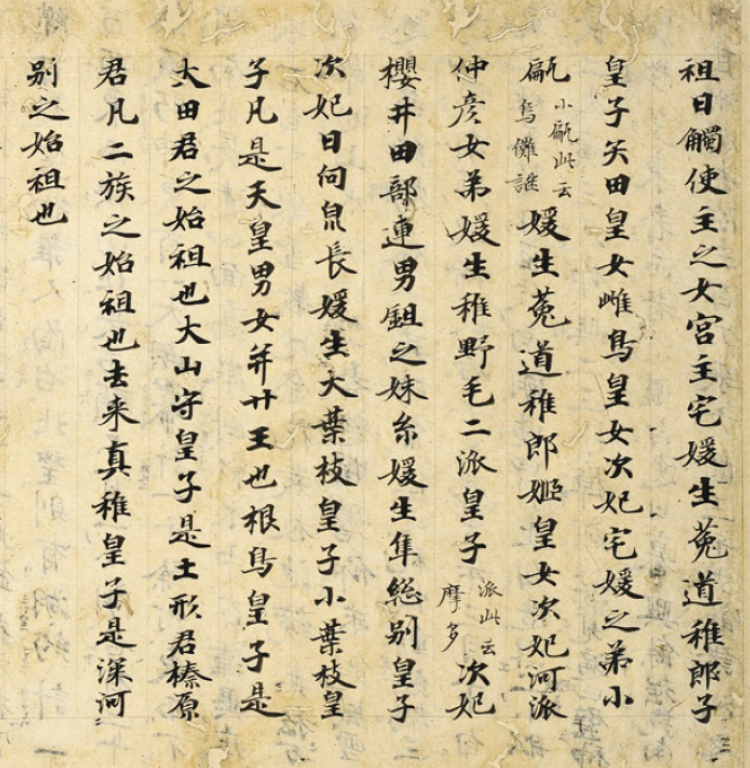 祖日觸使主之女宮主宅媛生菟道稚郎子
皇子矢田皇女雌鳥皇女次妃宅媛之弟小
甂小甂此云烏儺謎媛生菟道稚郎姬皇女次妃河派
仲彦女弟媛生稚野毛二派皇子派此云摩多次妃
櫻井田部連男鉏之妹糸媛生隼総别皇子
次妃日向泉長媛生大葉枝皇子小葉枝皇
子凡是天皇男女并廿王也根鳥皇子是
大田君之始祖也大山守皇子是土形君榛原
君凡二族之始祖也去来真稚皇子是深河
别之始祖也